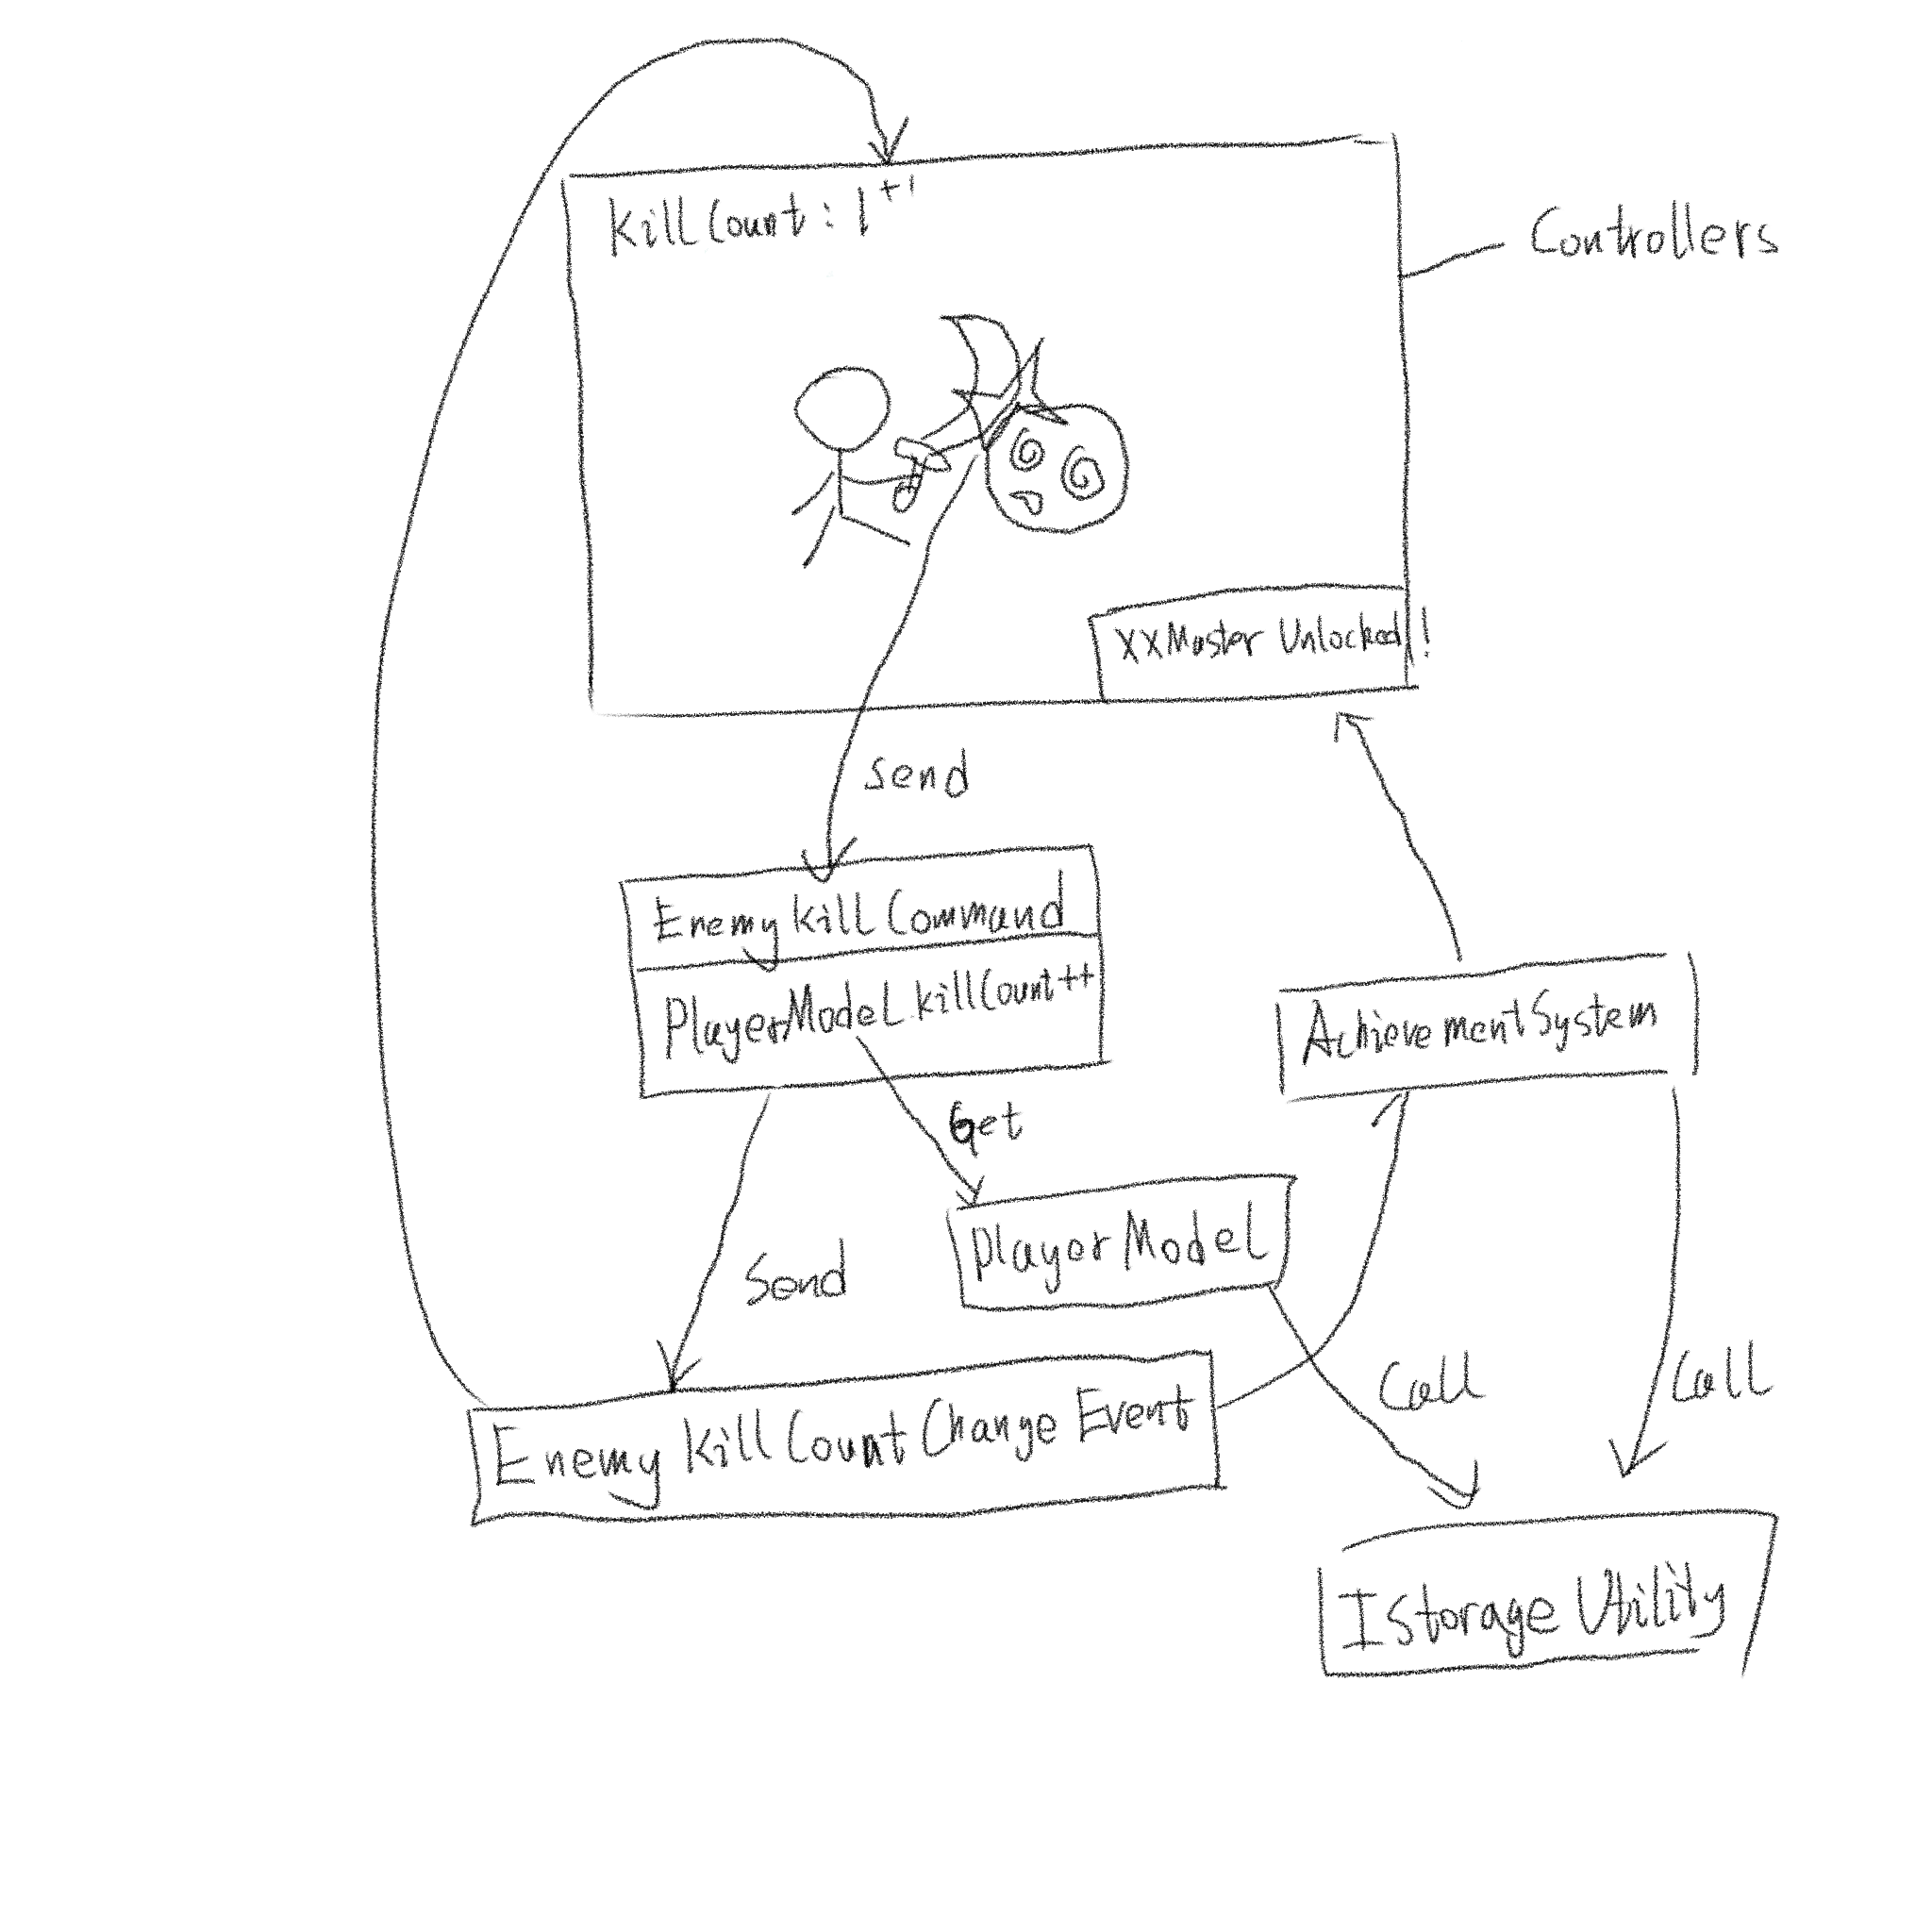 KillCount: 1 +1
Controllers
XXMaster Unlocked!
Send
EnemyKillCommand
PlayerModel.killCount++
AchievementSystem
Get
PlayerModel
Send
Call
Call
EnemyKillCountChangeEvent
IStorageUtility